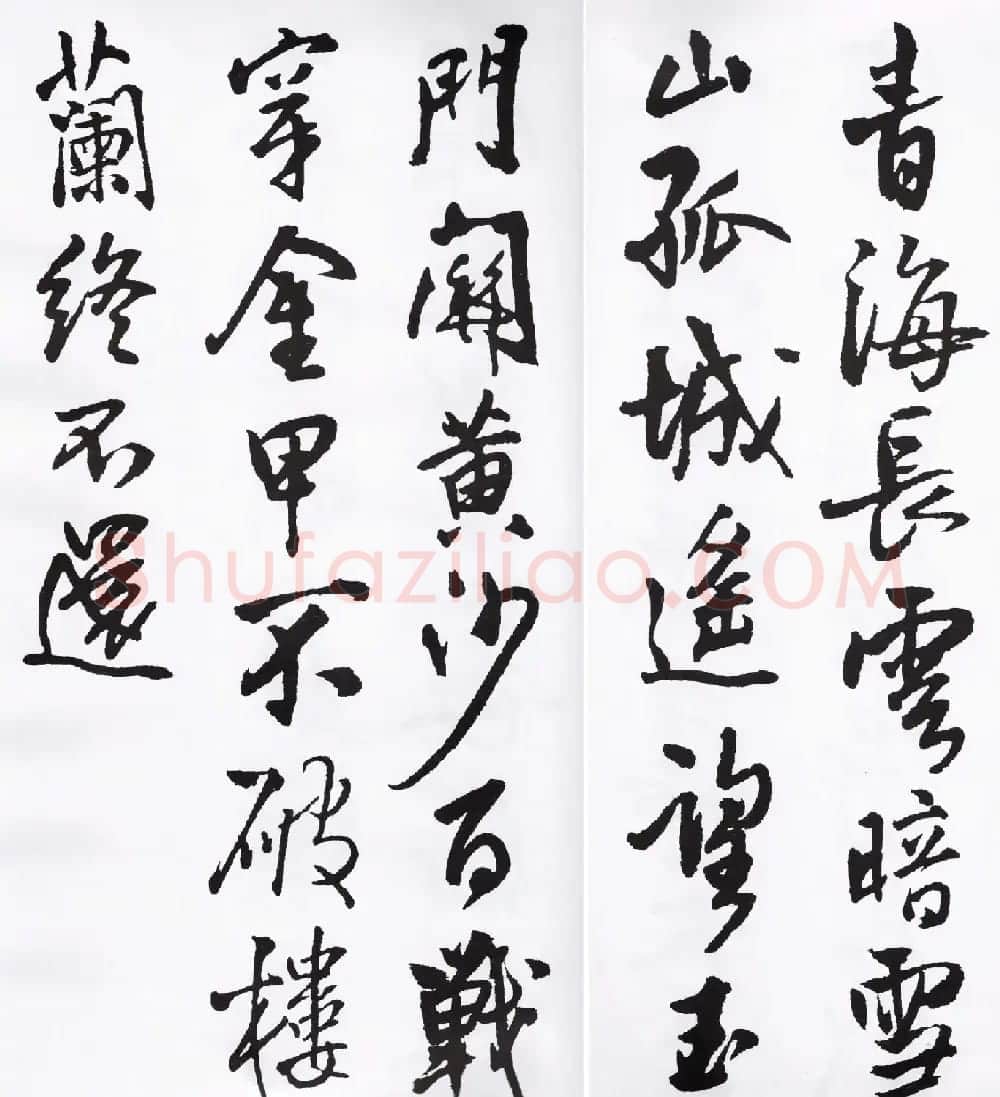 青海長雲暗雪
山孤城遥望玉
門關黄沙百戰
穿金甲不破樓
蘭終不還
Shufaziliao.COM